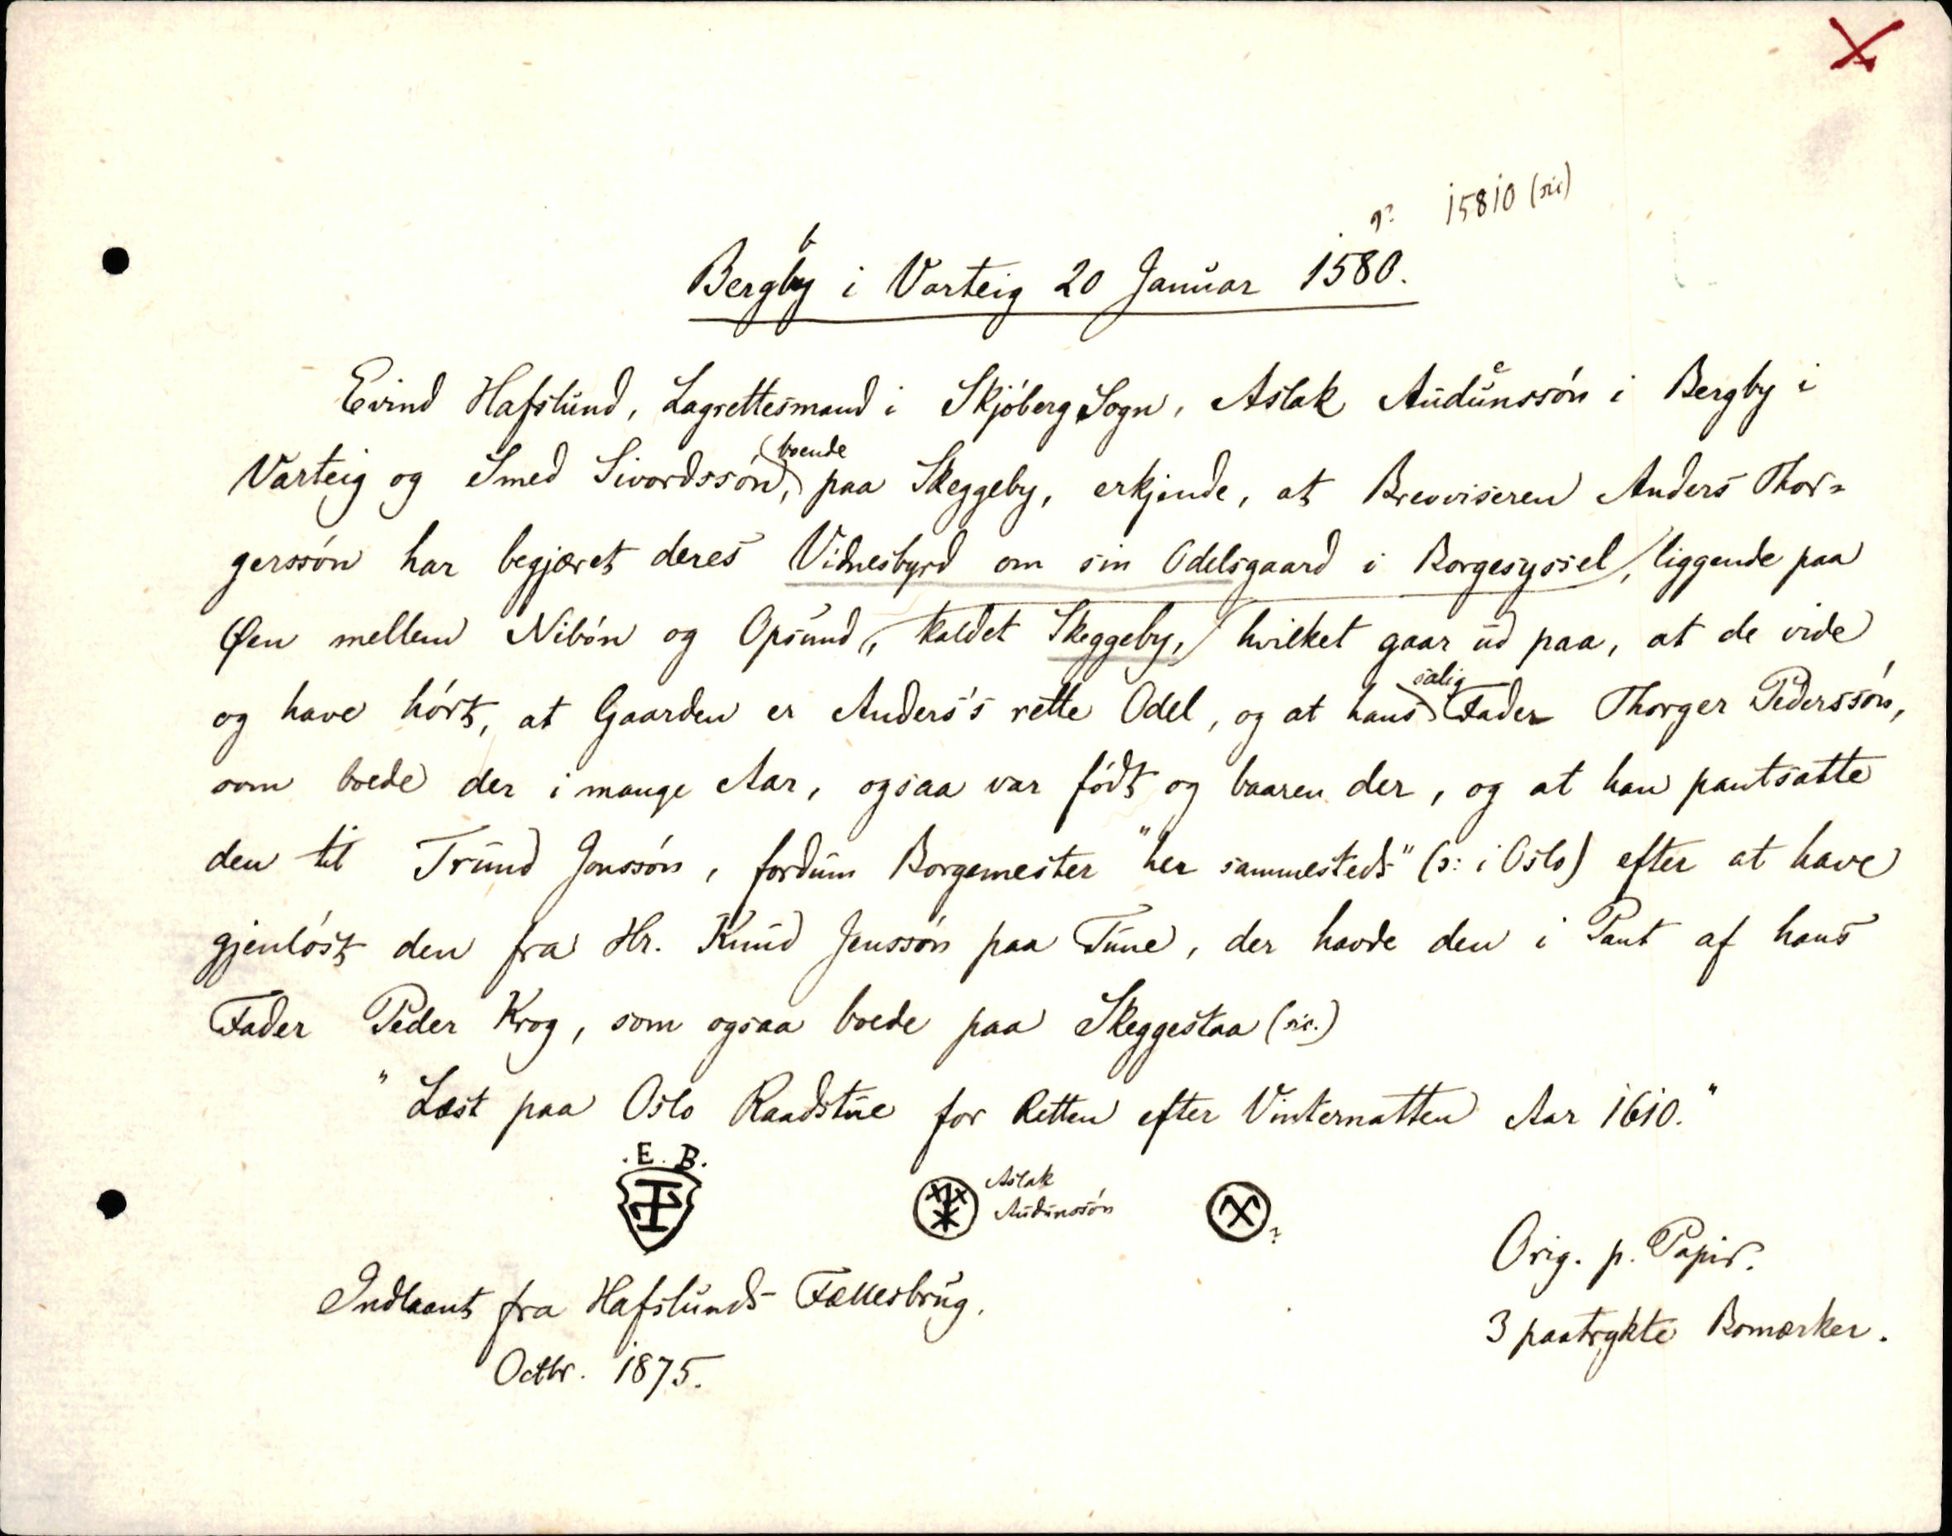 ɔ: 15810 (sic)
Bergby i Varteig 20 Januar 1580.
Evind Hafslund, Lagrettesmand i Skjöberg Sogn, Aslak Audunssön i Bergby i
Varteig og Smed Sivordssön, boende paa Skeggeby, erkjende, at Brevviseren Anders Thor-
gerssön har begjæret deres Vidnesbyrd om sin Odelsgaard i Borgesyssel, liggende paa
Øen mellem Nibön og Opsund, kaldet Skeggeby, hvilket gaar ud paa, at de vide
og have hört, at Gaarden er Anders's rette Odel, og at hans salig Fader Thorger Pederssön,
som boede der i mange Aar, ogsaa var födt og baaren der, og at han pantsatte
den til Trund Jonssön, fordum Borgemester "her sammesteds" (ɔ: i Oslo) efter at have
gjenlöst den fra Hr. Knud Jenssön paa Tune, der havde den i Pant af hans
Fader Peder Krog, som ogsaa boede paa Skeggestaa (sic.)
"Læst paa Oslo Raadstue for Retten efter Vinternatten Aar 1610."
.E. B.
Aslak
Audunssön
?
Orig. p. Papir.
Indlaant fra Hafslunds Fællesbrug.
3 paatrykte Bomærker.
Octbr. 1875.